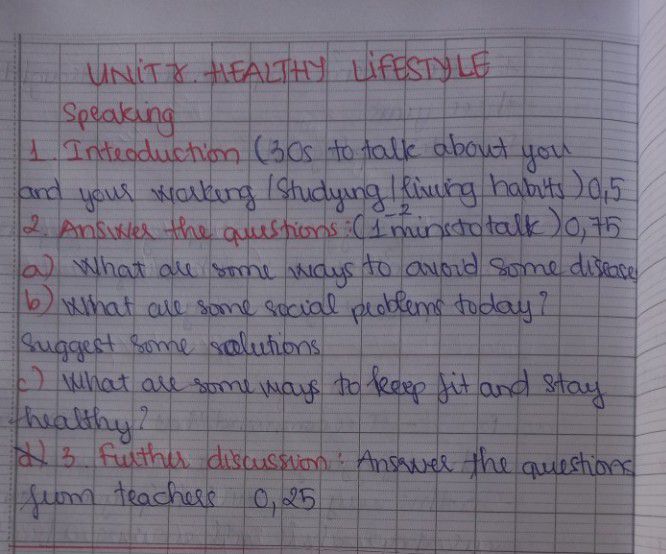 UNIT 8. HEALTHY LIFESTYLE
Speaking
1. Introduction (30s to talk about you
and your working / Studying / living habits) 0,5
2. Answer the questions: (1-2 mins to talk) 0,75
a) What are some ways to avoid some disease
b) What are some social problems today?
Suggest some solutions
c) What are some ways to keep fit and stay
healthy?
d) 3. Further discussion: Answer the questions
from teachers 0,25